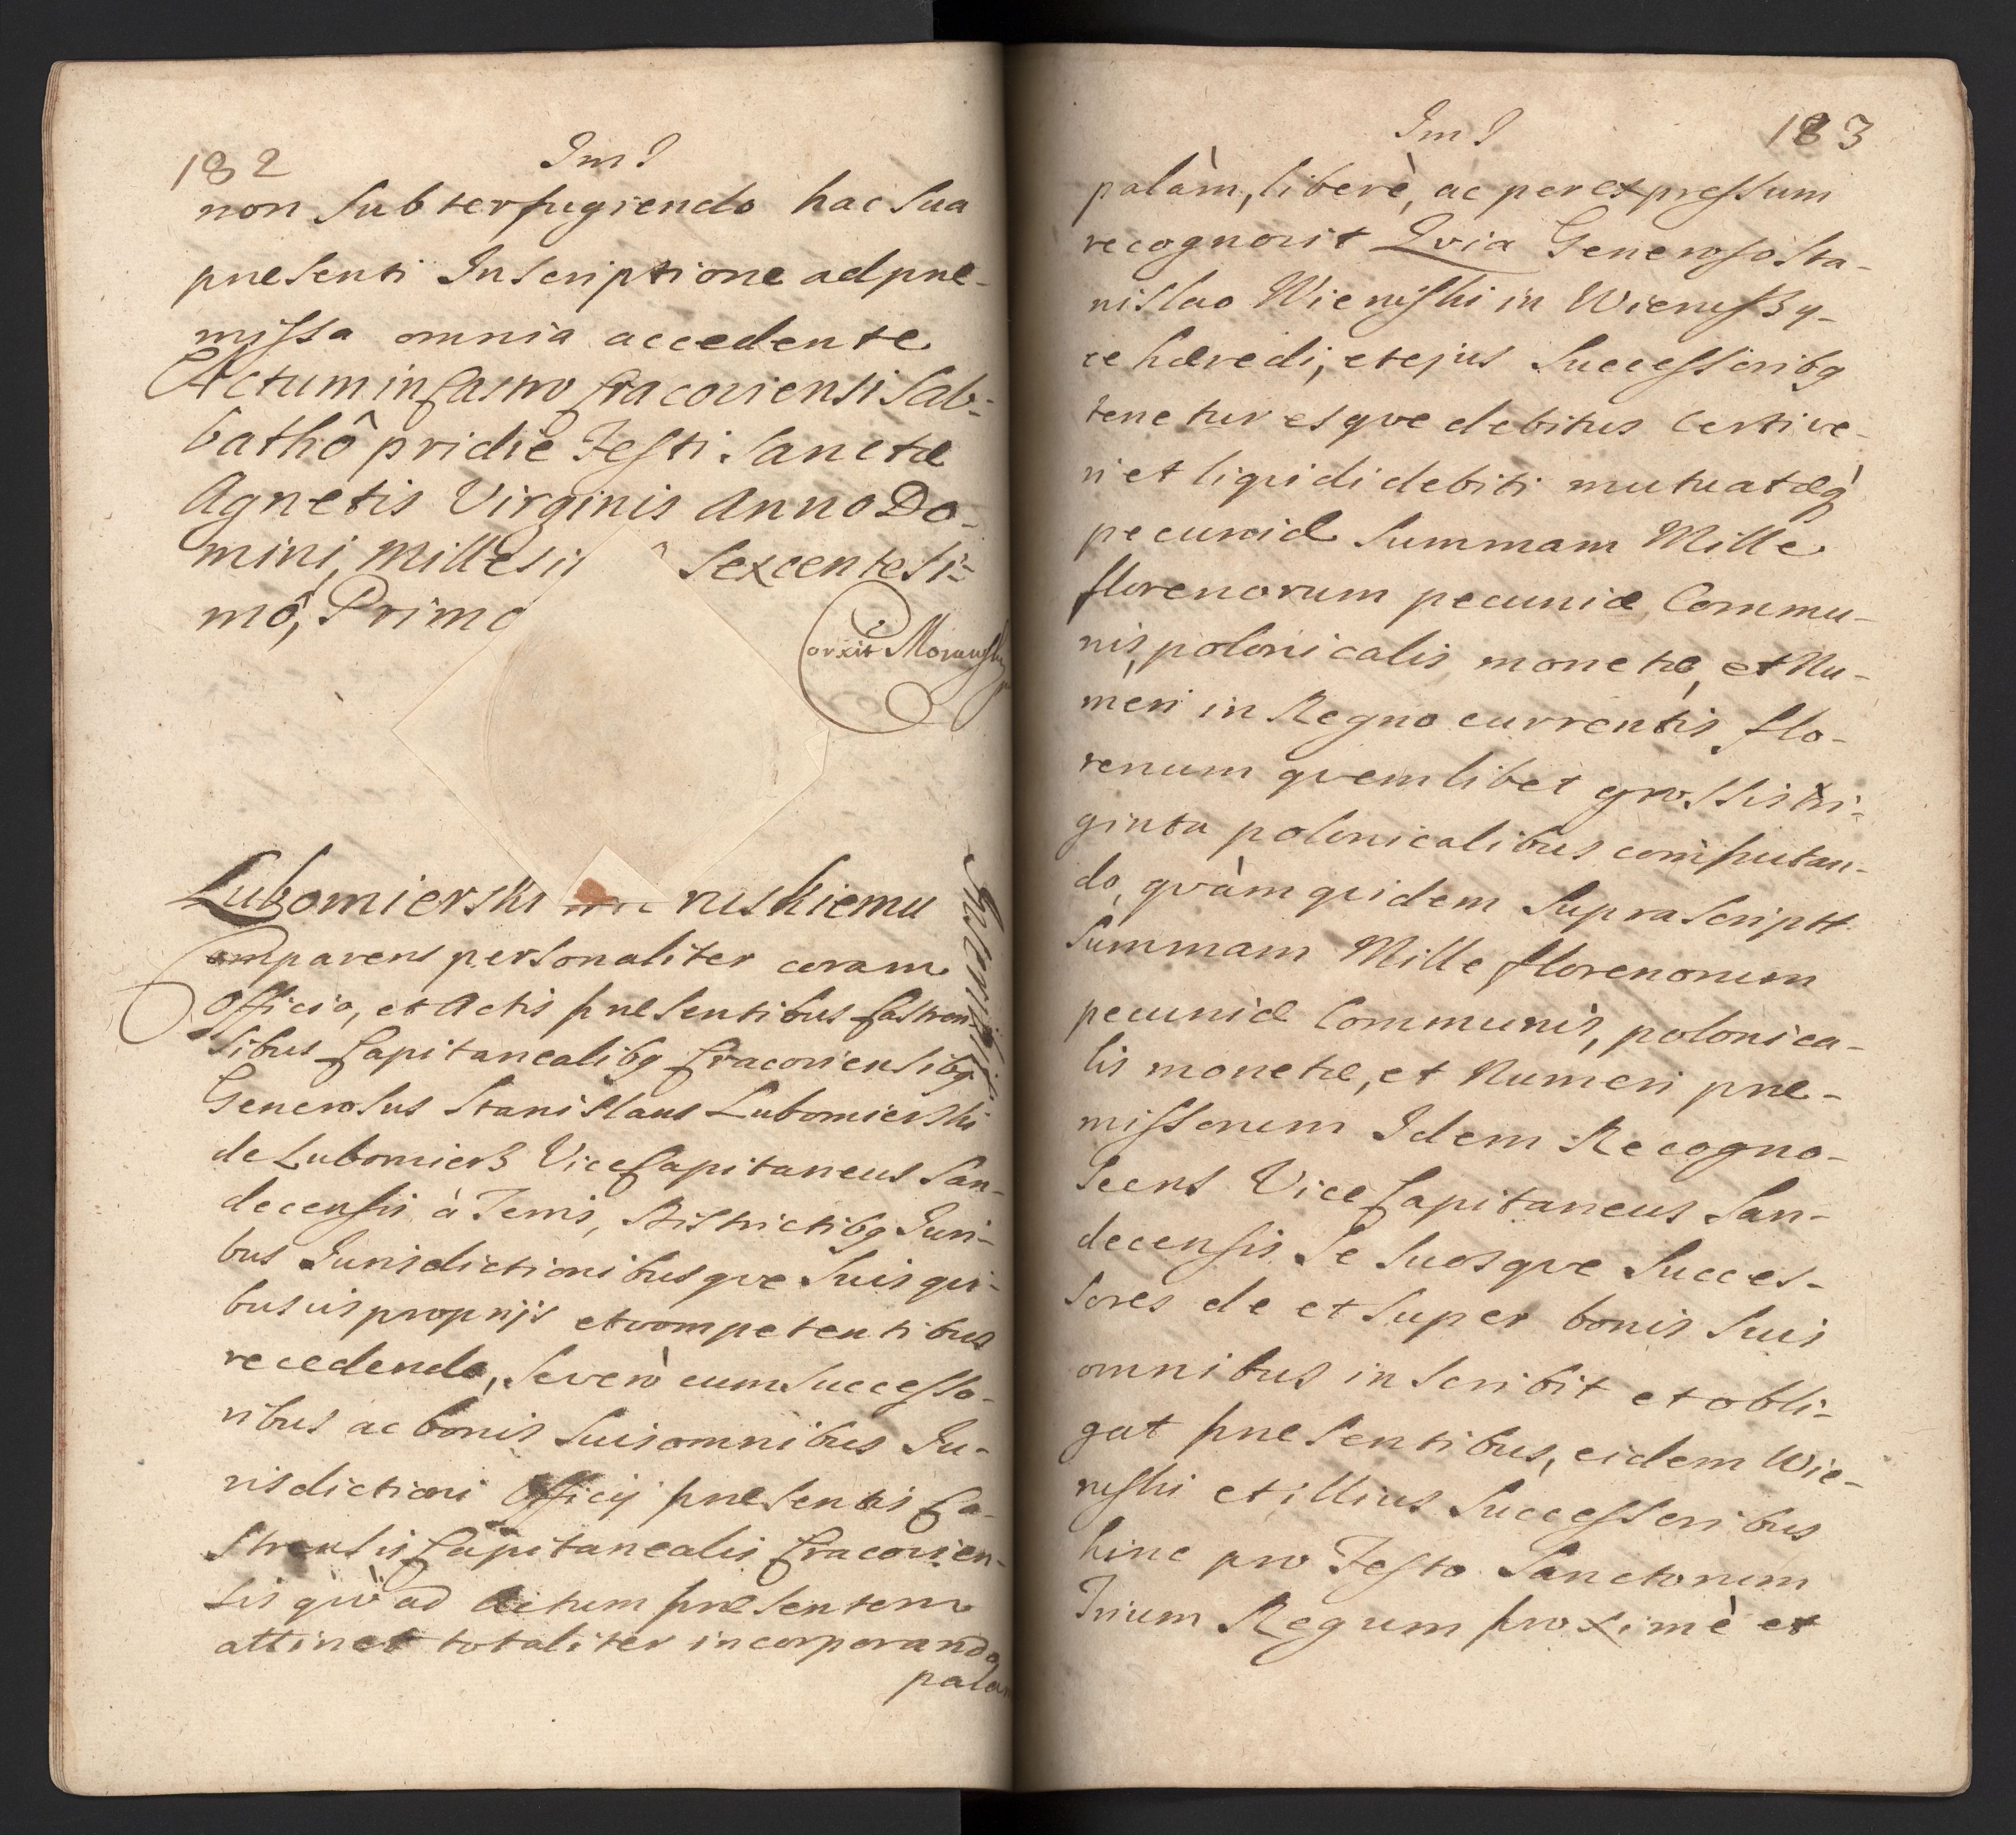 182
ImI
non Subterfugiendo hac Sua
præsenti Inscriptione ad præ-
missa omnia accedente
Actum in Castro Cracoviensi Sab-
bathô pridie Festi Sanctæ
Agnetis Virginis Anno Do-
mini, Millesi Sexcentesi-
mô, Primo
Corxit Morawski
Lubomierski ruskiemu
Comparens personaliter coram
Officio, et Actis præsentibus Castren
sibus Capitanealibq Cracoviensibq
Generosus Stanislaus Lubomierski
de Lubomierz ViceCapitaneus San-
decensis à Terris, Districtibq Juri-
bus Jurisdictionibusqve Suis qvi-
busvis proprijs et competentibus
recedendo, Se verò cum Successo-
ribus ac bonis Suis omnibus Ju-
risdictioni Officij præsentis Ca-
strensis Capitanealis Cracovien-
sis qvo ad Actum præsentem
attinet totaliter incorporando
palam
183
ImI
palàm, liberè, ac per expressum
recognovit Qvia Generoso Sta-
nislao Wieruski in Wierussy-
ce hæredi, et ejus Successoribq
tenetur esqve debitus certi ve-
ri et liqvidi debiti mutuatæq
pecuniæ Summam Mille
florenorum pecuniæ Commu-
nis, polonicalis monetæ, et Nu-
meri in Regno currentis, flo-
renum qvemlibet grossis tri-
ginta polonicalibus computan-
do, qvàm qvidem Suprascriptt
Summam Mille florenorum
pecuniæ Communis, polonica-
lis monetæ, et Numeri præ-
missorum Idem Recogno-
scens ViceCapitaneus San-
decensis Se Suosqve Succes-
sores de et Super bonis Suis
omnibus inscribit et obli-
gat præsentibus, eidem Wie-
ruski et illius Successoribus
hinc pro Festo Sanctorum
Trium Regum proximè et